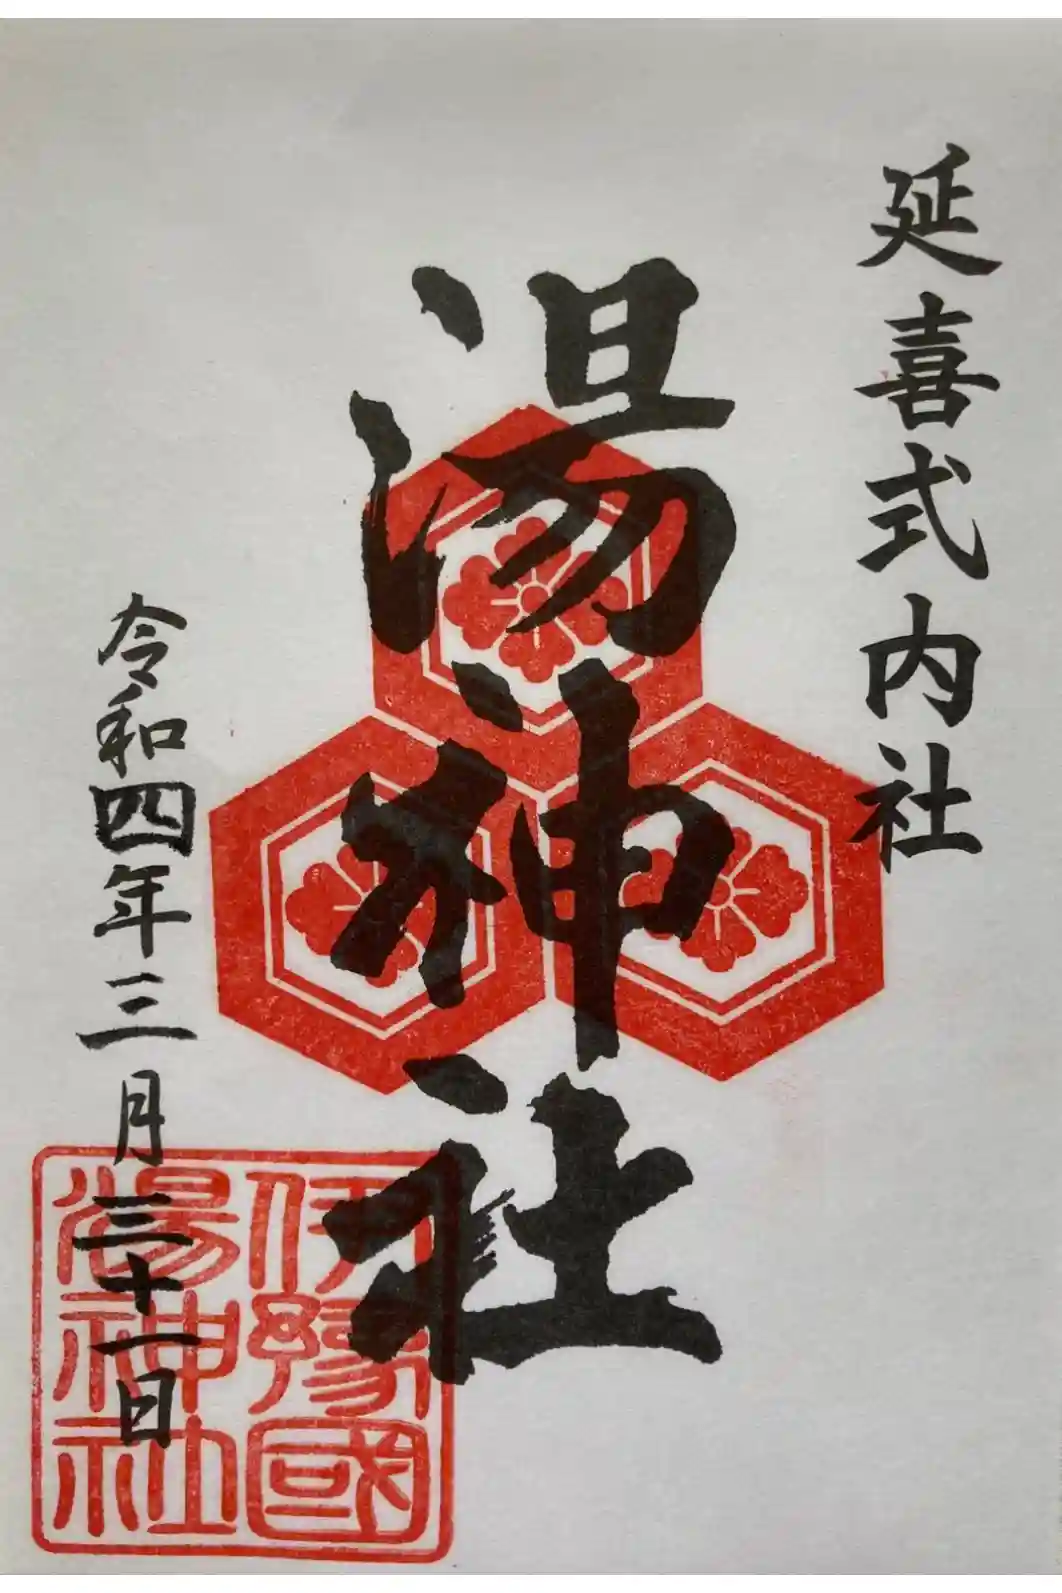 延喜式内社
湯神社
令和四年三月三十一日
伊豫國
湯神社